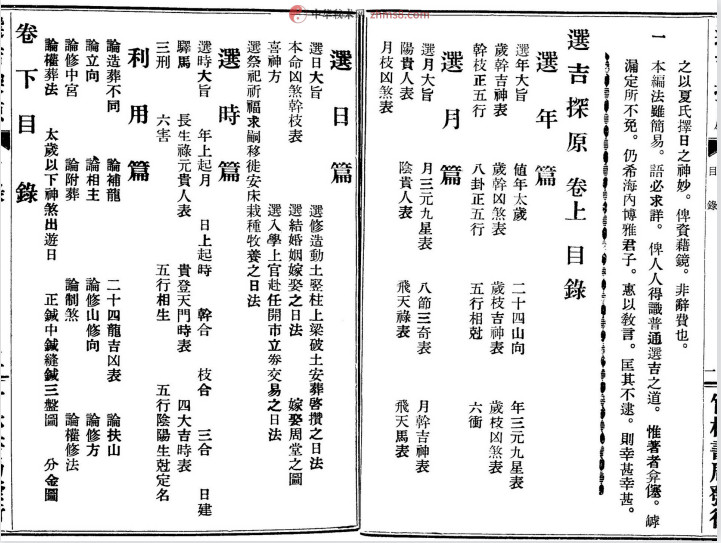 中华秘术网 zhms8.com
之以夏氏擇日之神妙。俾資藉鏡。非辭費也。
一 本編法雖簡易。語必求詳。俾人人得識普通選吉之道。惟著者弇僿。罅
漏定所不免。仍希海內博雅君子。惠以敎言。匡其不逮。則幸甚幸甚。
選吉探原 卷上 目錄
選年篇
選年大旨 值年太歲 二十四山向 年三元九星表
歲幹吉神表 歲幹凶煞表 歲枝吉神表 歲枝凶煞表
幹枝正五行 八卦正五行 五行相尅 六衝
選月篇
選月大旨 月三元九星表 八節三奇表 月幹吉神表
陽貴人表 陰貴人表 飛天祿表 飛天馬表
月枝凶煞表
選日篇
選日大旨 選修造動土竪柱上梁破土安葬啓攢之日法
本命凶煞幹枝表 選結婚姻嫁娶之日法 嫁娶周堂之圖
喜神方 選入學上官赴任開市立劵交易之日法
選祭祀祈福求嗣移徙安床栽種牧養之日法
選時篇
選時大旨 年上起月 日上起時 幹合 枝合 三合 日建
驛馬 長生祿元貴人表 貴登天門時表 四大吉時表
三刑 六害 五行相生 五行陰陽生尅定名
利用篇
論造葬不同 論補龍 二十四龍吉凶表 論扶山
論立向 論相主 論修山修向 論修方
論修中宮 論附葬 論制煞 論權修法
論權葬法 太歲以下神煞出遊日 正鍼中鍼縫鍼三盤圖 分金圖
卷下目錄
目錄
一